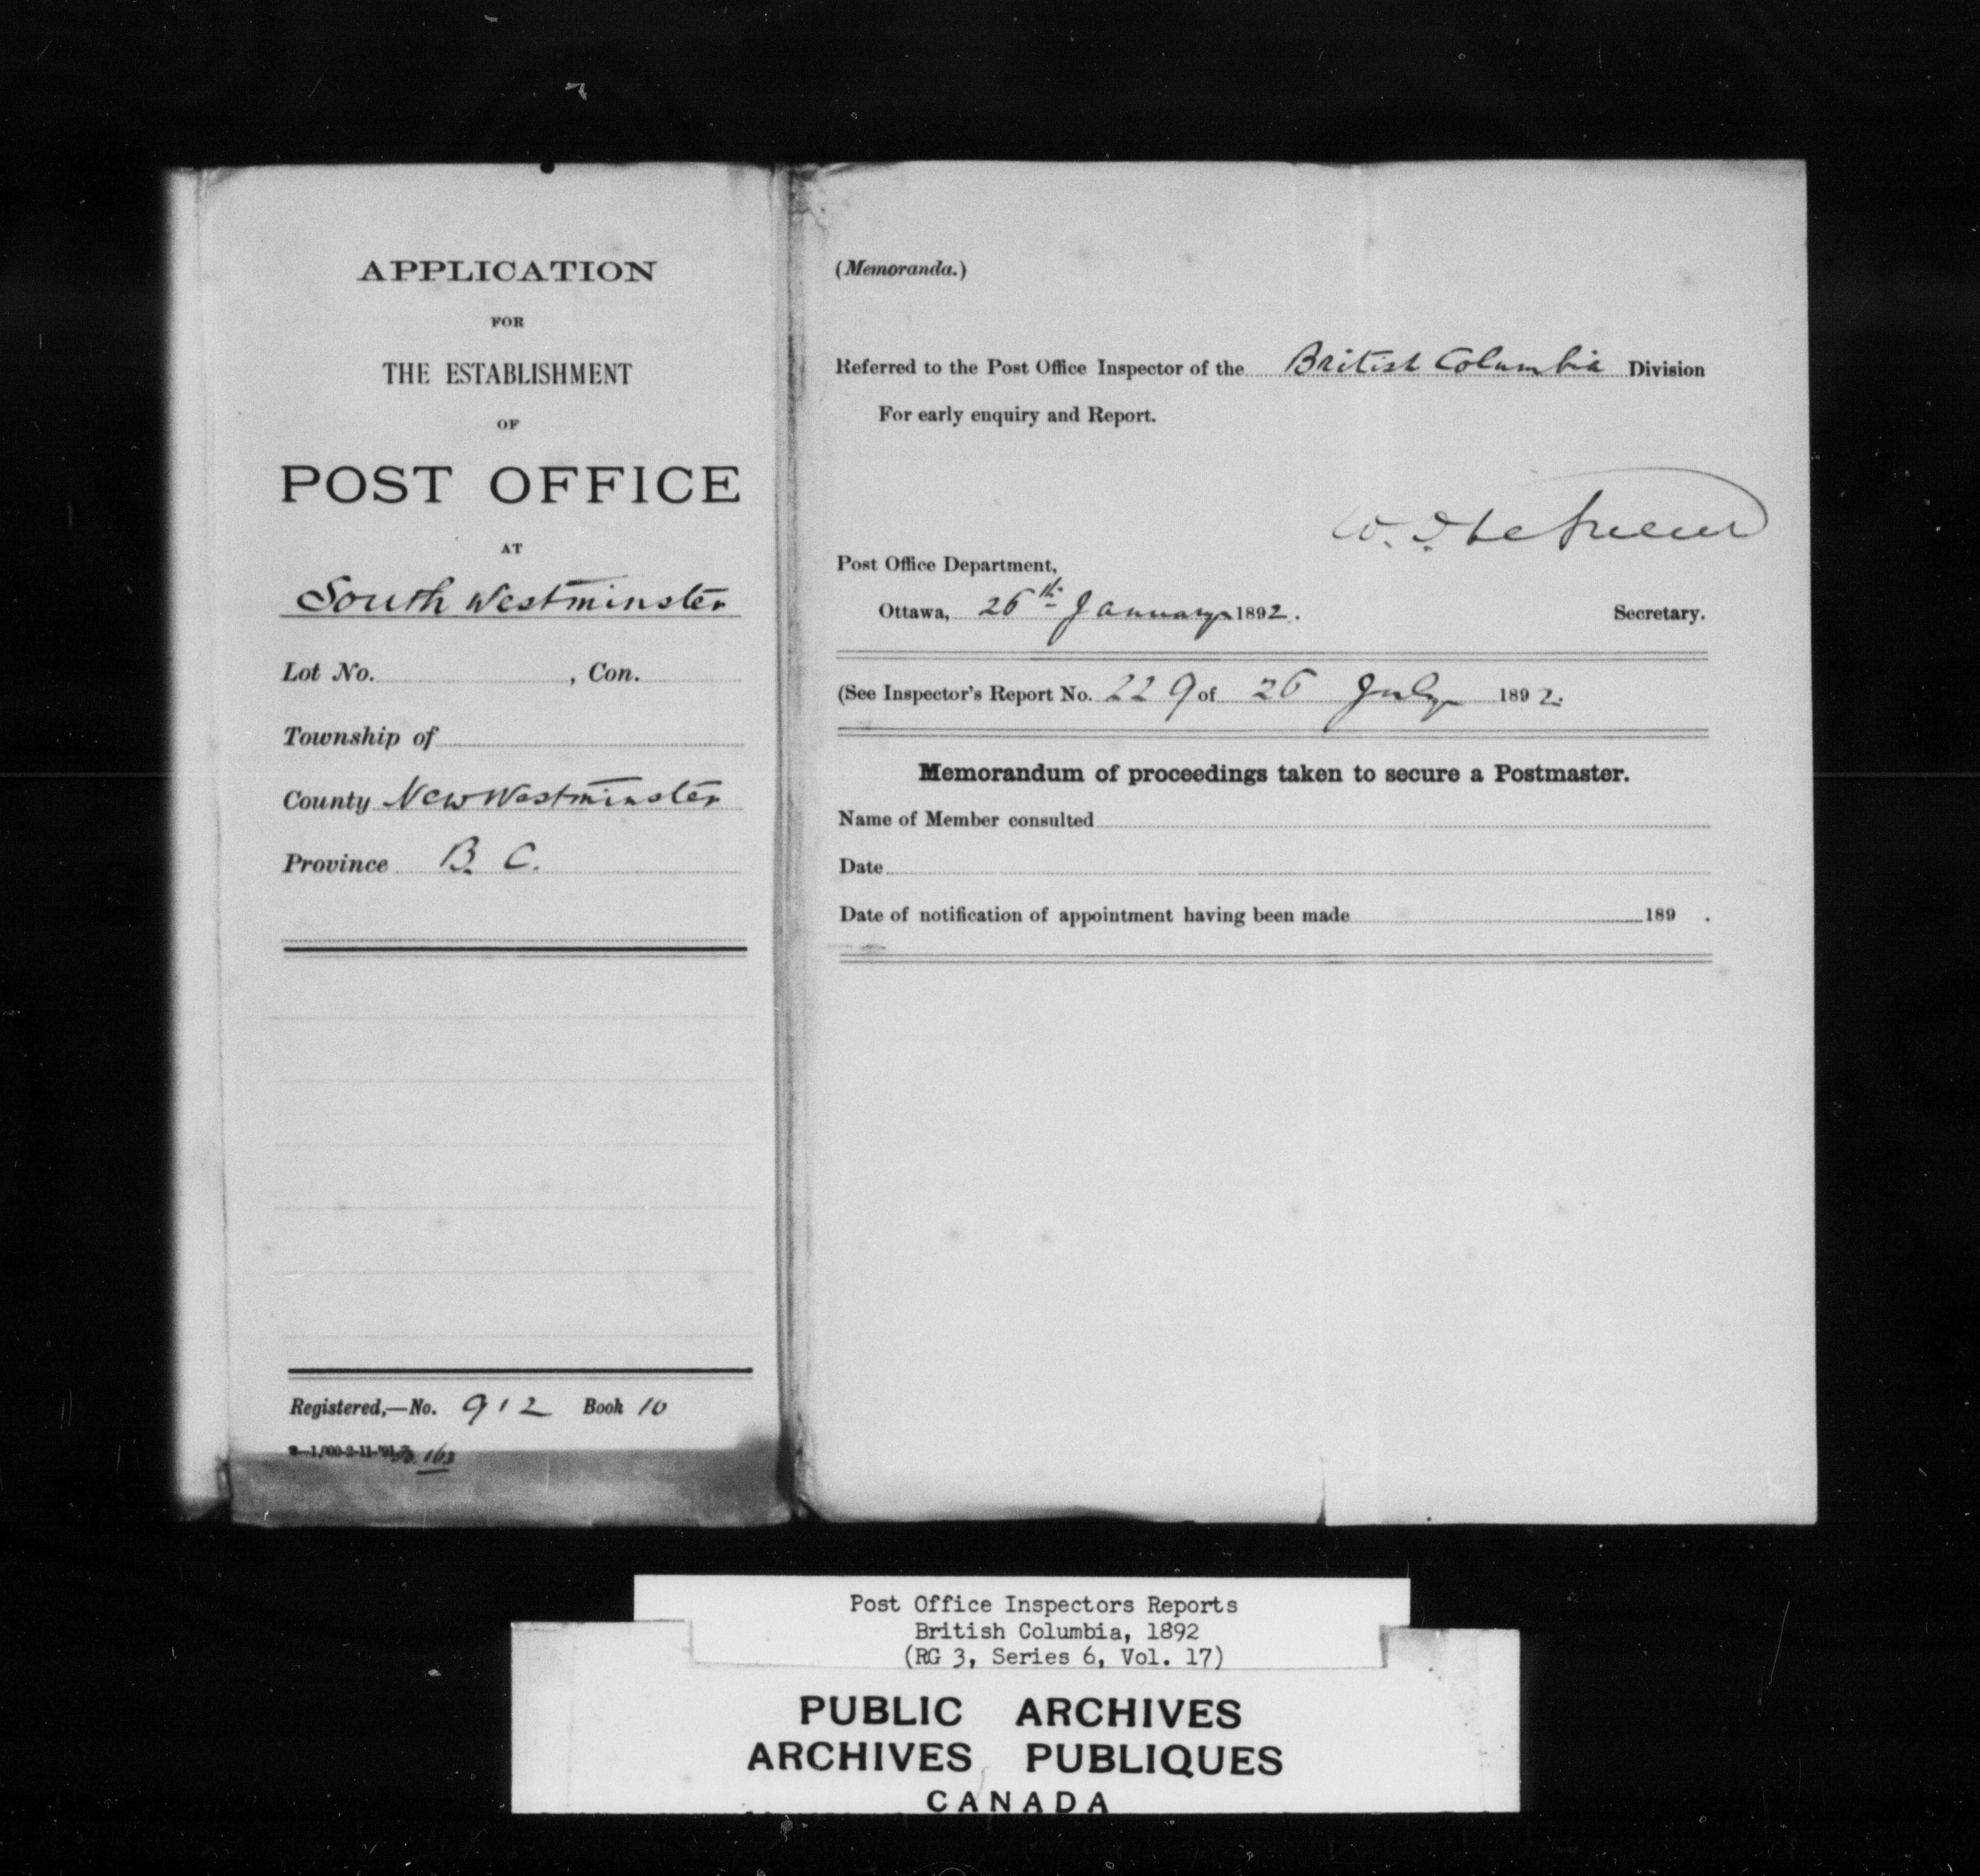 APPLICATION
FOR
THE ESTABLISHMENT
OF
POST OFFICE
AT
South Westminster
Lot No. , Con.
Township of
County New Westminster
Province B. C.
Registered,—No. 912 Book 10
163
(Memoranda.)
Referred to the Post Office Inspector of the British Columbia Division
For early enquiry and Report.
W. D.
Post Office Department,
Ottawa, 26th January 1892.
Secretary.
(See Inspector's Report No. 229 of 26 July 1892.
Memorandum of proceedings taken to secure a Postmaster.
Name of Member consulted
Date
Date of notification of appointment having been made 189 .
Post Office Inspectors Reports
British Columbia, 1892
(RG 3, Series 6, Vol. 17)
PUBLIC ARCHIVES
ARCHIVES PUBLIQUES
CANADA